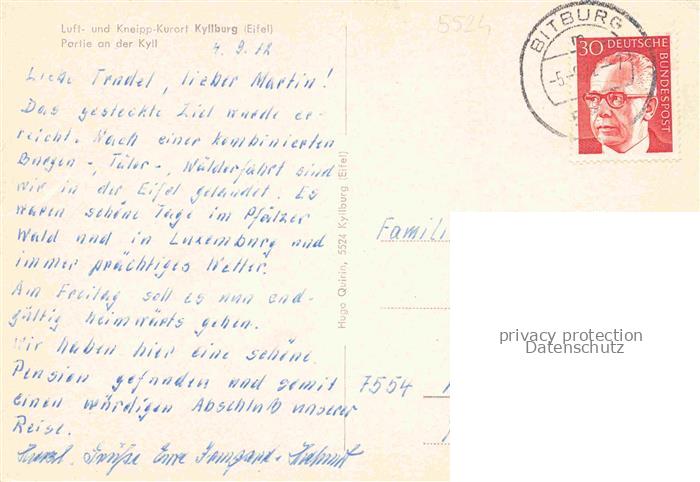 Luft- und Kneipp-Kurort Kyllburg (Eifel)
Partie an der Kyll
5524
4. 9. 72
Liebe Trudel, lieber Martin!
Das gesteckte Ziel wurde er-
reicht. Nach einer kombinierten
Burgen-, Täler-, Wälderfahrt sind
wir in der Eifel gelandet. Es
waren schöne Tage im Pfälzer
Wald und in Luxemburg und
immer prächtiges Wetter.
Am Freitag soll es nun end-
gültig heimwärts gehen.
Wir haben hier eine schöne
Pension gefunden und somit
einen würdigen Abschluß unserer
Reise.
Herzl. Grüße Eure Irmgard + Helmut
Hugo Quirin, 5524 Kyllburg (Eifel)
BITBURG
30 DEUTSCHE
BUNDESPOST
Famili
7554
privacy protection
Datenschutz